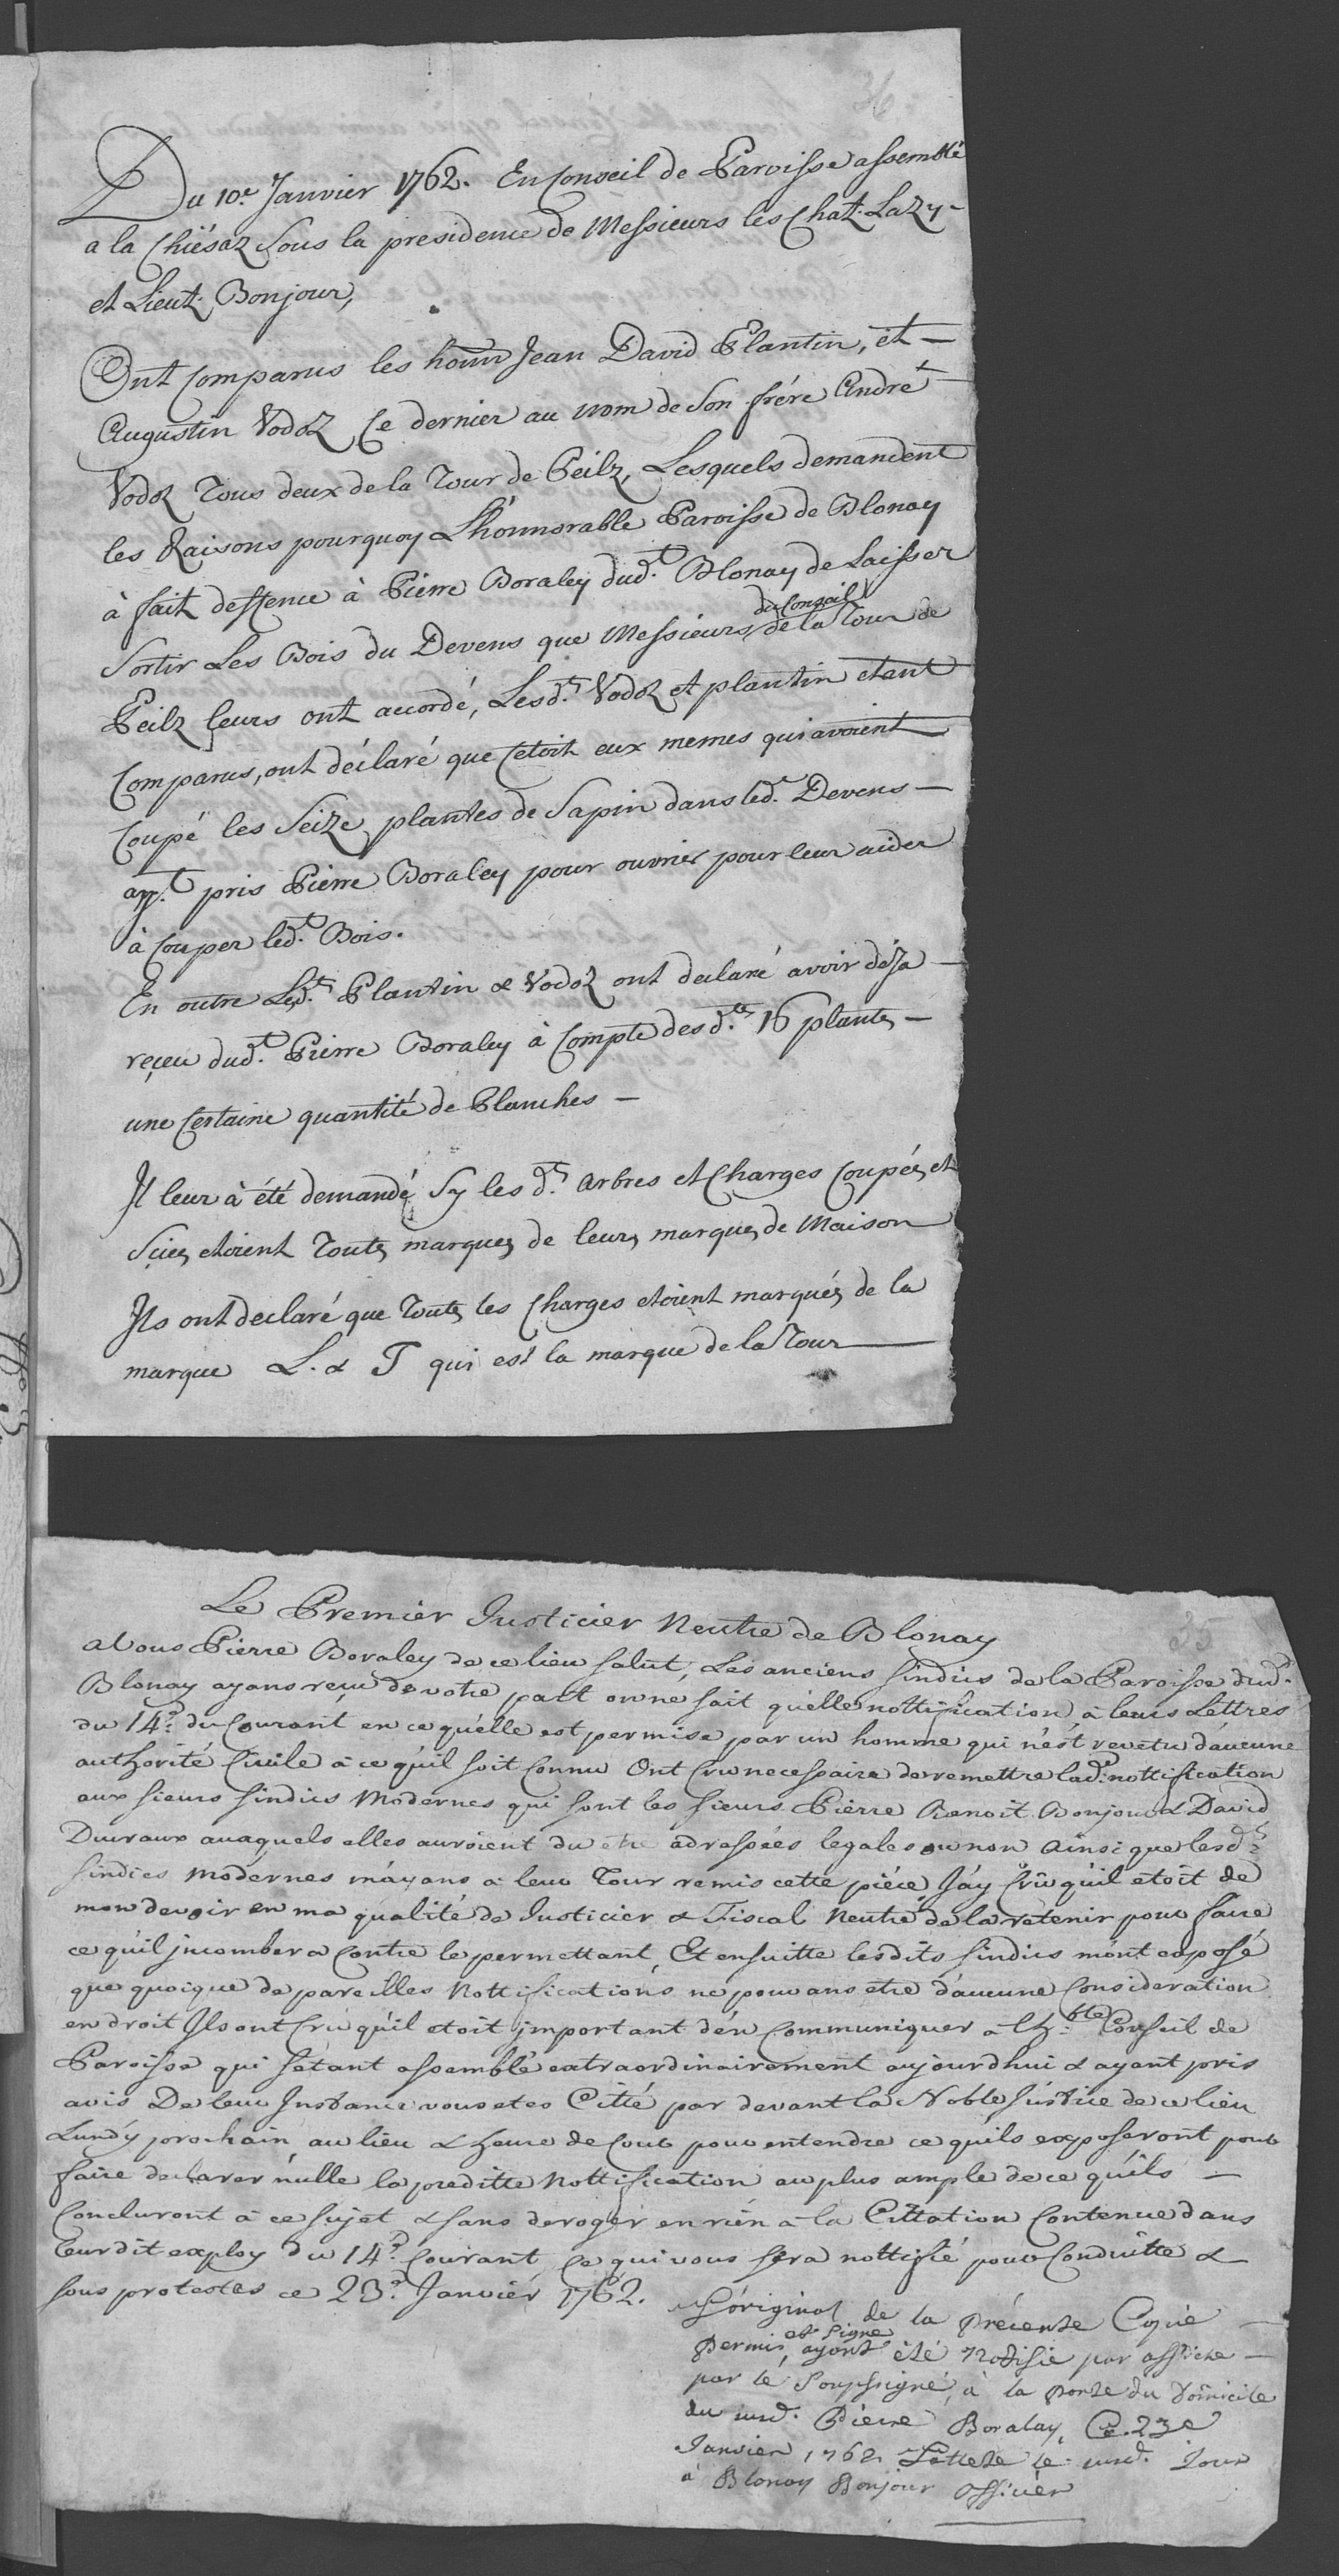 36
Du 10.e Janvier 1762. En Conseil de Paroisse assemblé
a la Chiésaz sous la presidence de Messieurs les Chat. Lazy-
et Lieut. Bonjour,
Ont Comparus les honn Jean David Plantin, et —
Augustin Vodoz Ce dernier au nom de son frére André
Vodoz Tous deux de la Tour de Peilz, Lesquels demandent
les Raisons pourquoy L'hounorable Paroisse de Blonay
à fait deffence à Pierre Boraley dud.t Blonay de Laisser
Sortir Les Bois du Devens que Messieurs du Conseil de la Tour de
Peilz leurs ont accordé, Lesd.ts Vodoz et plantin etant
Comparus, ont déclaré que C'etoit eux memes qui avoient
Coupé les Seize plantes de Sapin dans led.t Devens —
ay.t pris Pierre Boraley pour ouvrier pour leur aider
à Couper led.t Bois.
En outre Lesd.ts Plantin & Vodoz ont declaré avoir déja —
reçeu dud.t Pierre Boraley à Compte des d.tes 16 plantes —
une Certaine quantité de Planches —
Il leur à été demandé Sy les d.ts arbres et Charges Coupées et
Sciées etoient Toutes marquées de leurs marques de Maison
Ils ont declaré que Toutes les Charges etoient marquées de la
marque L. & T qui est la marque de la Tour
35
Le Premier Justicier Neutre de Blonay
a Vous Pierre Boraley de ce lieu salut, Les anciens sindics de la Paroisse dud.t
Blonay ayans reçu de votre part on ne sait quelle nottification à leurs Lettres
du 14.e du Courant en ce qu'elle est permise par un homme qui n'est revetu d'aucune
authorité Civile à ce qu'il soit Connu Ont Cru necessaire de remettre lad.e nottification
aux sieurs sindics Modernes qui sont les sieurs Pierre Benoit Bonjour & David
Ducraux auxquels elles auroient du etre adressées legales ou non Ainsi que lesd.ts
sindics modernes m'ayans à leur Tour remis cette piéce J'ay Crû qu'il etoit de
mon devoir en ma qualité de Justicier & Fiscal Neutre de la retenir pour faire
ce qu'il jncombera Contre le permettant, Et ensuitte lesdits sindics m'ont exposé
que quoique de pareilles Nottifications ne pouvans etre d'aucune Consideration
en droit Ils ont Crû qu'il etoit jmportant d'en Communiquer à l'h.ble Conseil de
Paroisse qui s'etant assemblé extraordinairement aujourdhui & ayant pris
avis De leur Instance vous etes Citté par devant la Noble Justice de ce lieu
Lundy prochain au lieu & heure de Cour pour entendre ce quils exposeront pour
faire declarer nulle la preditte Nottification au plus ample de ce qu'ils —
Concluront à ce sujet & sans deroger en rien a la Cittation Contenue dans
leurdit exploy du 14.e Courant Ce qui vous sera nottifié pour Conduitte &
sous protestes ce 23.e Janvier 1762.
L'original de la Présente Copie —
Permis, et signé ayant été Notifié par affiche —
par le Soussigné, à la porte du Domicile
du susd. Pierre Boraley, Ce 23e
Janvier 1762. L'atteste le susd. Jour
à Blonay Bonjour Officier